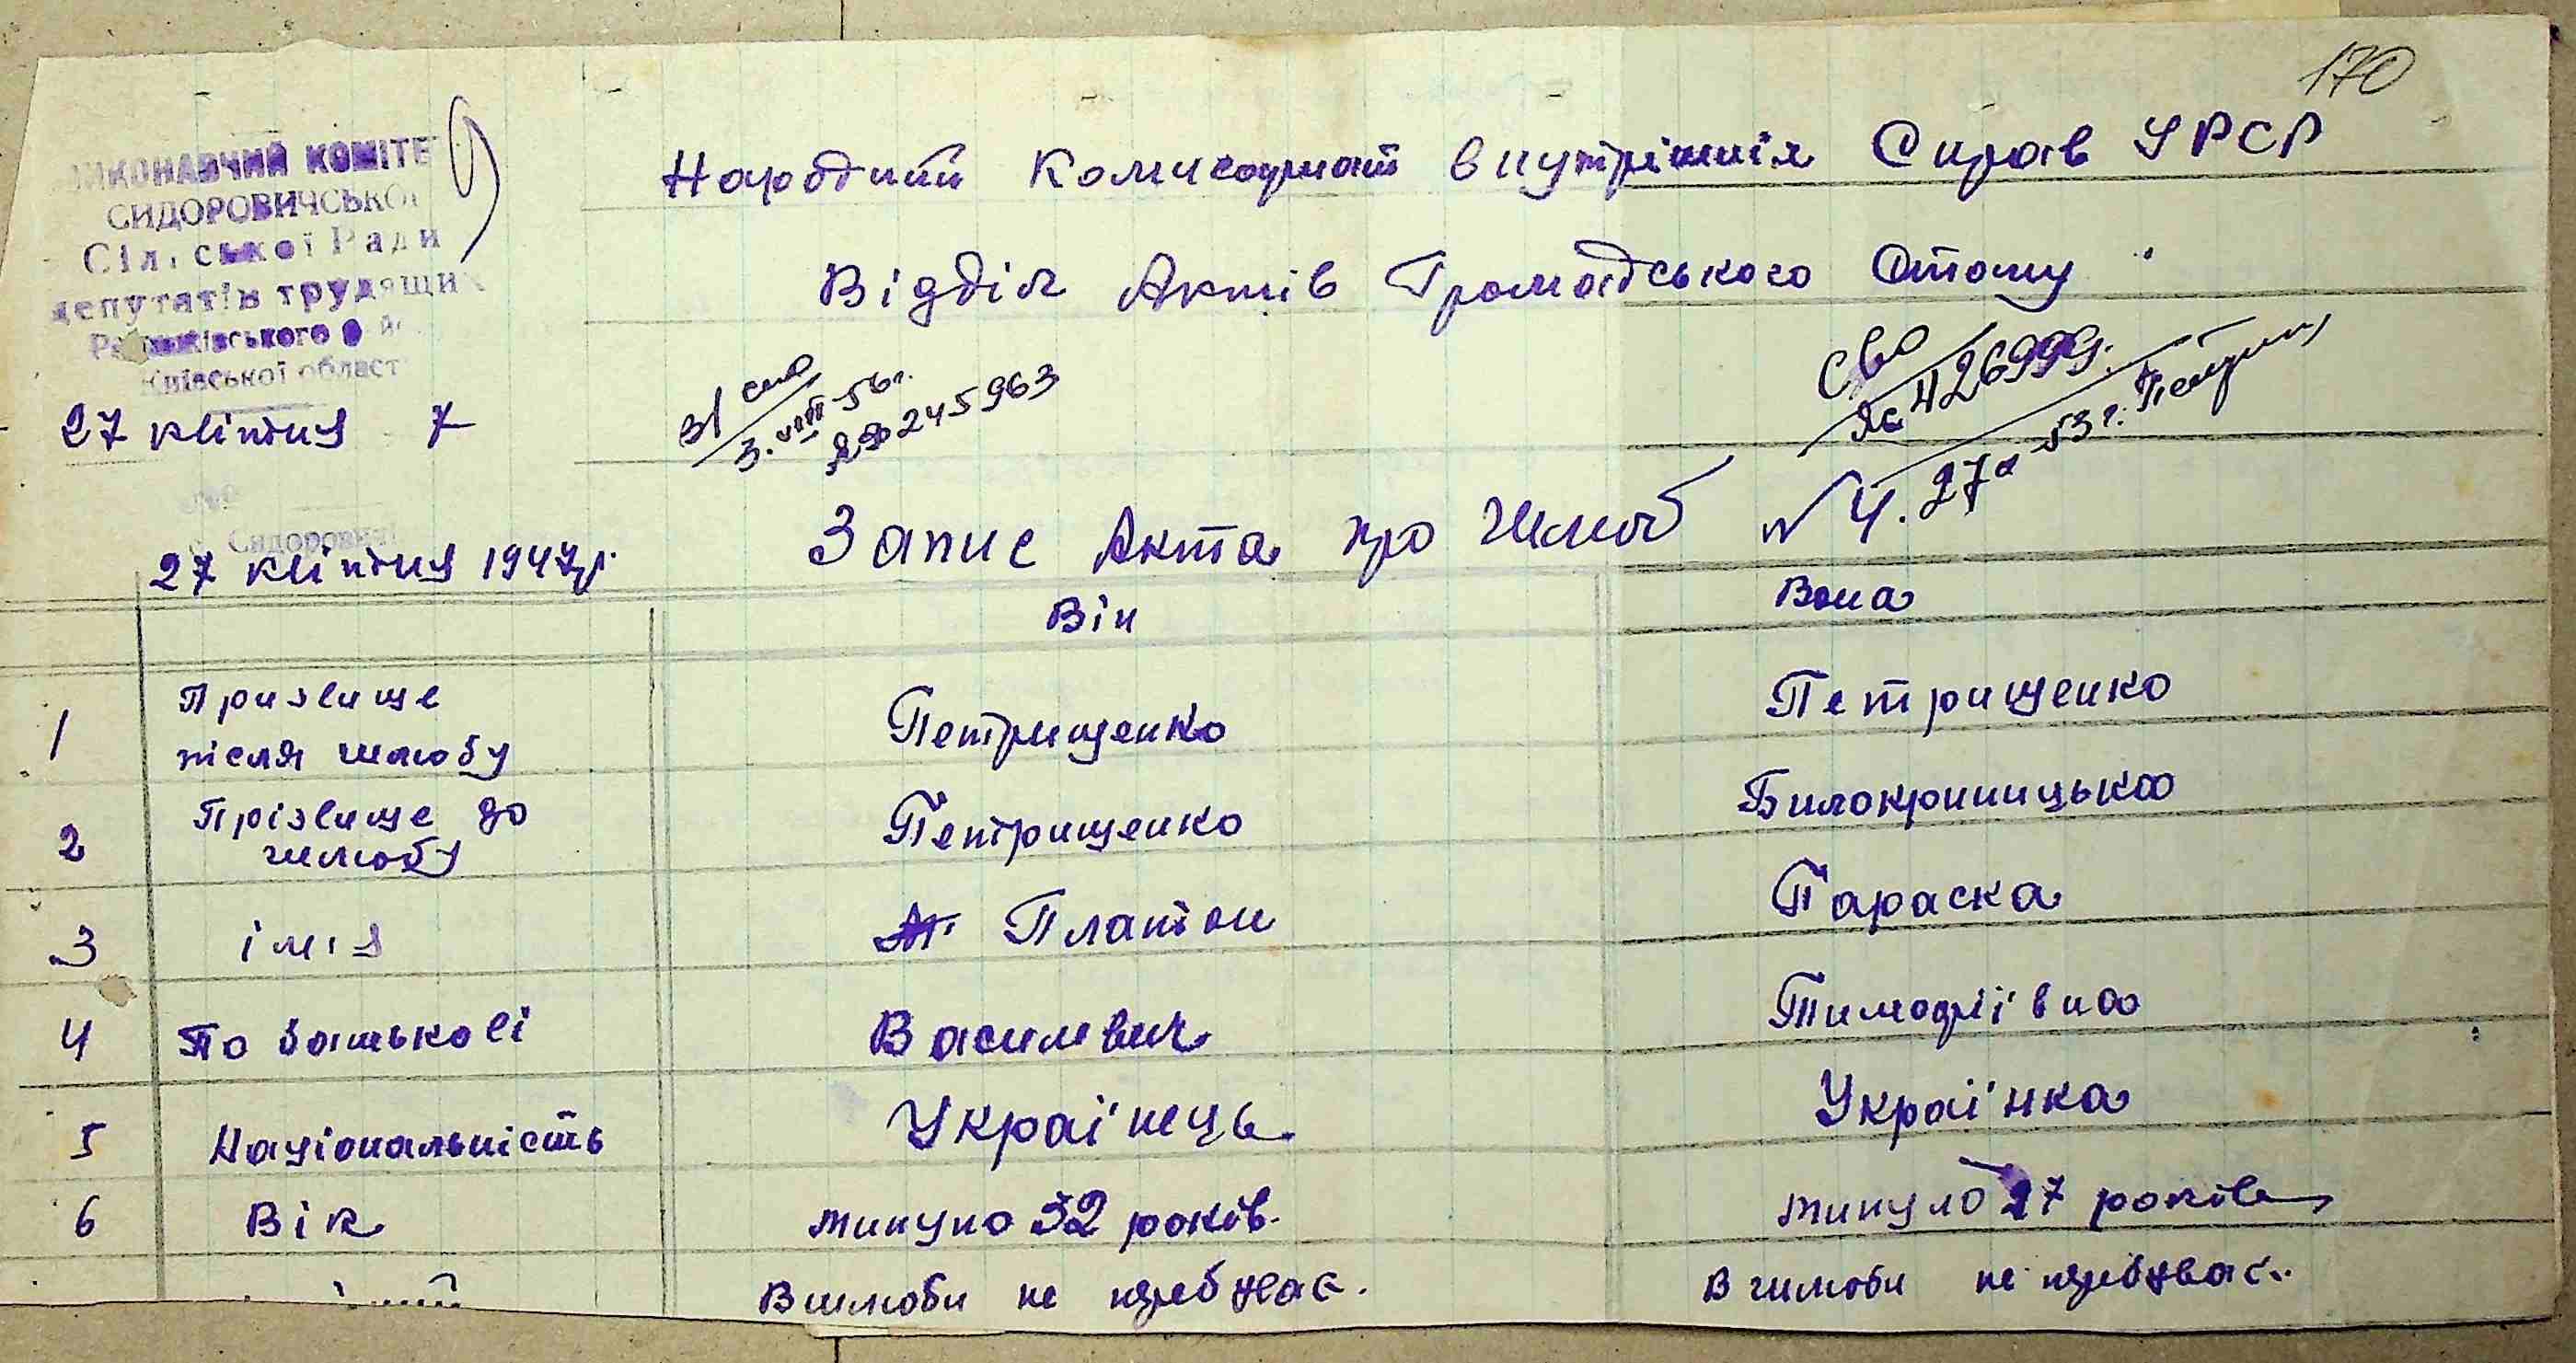 170
ВИКОНАВЧИЙ КОМІТЕ
СИДОРОВИЧСЬКОЇ
Сільської Ради
депутатів трудящих
Київської област
27 квітня 7
Народний Комисаріат внутрішніх Справ УРСР
Відділ Актів Громадського Стану
3. VIII 56 г.
245963
СВО
426999.
27
53 г.
с. Сидоровичі
27 квітня 1947 р.
Запис Акта про Шлюб № 4.
Він Вона
1 Призвище після шлюбу Петрищенко Петрищенко
2 Прізвище до шлюбу Петрищенко Билокриницька
3 імія Платон Параска
4 По батькові Василевич Тимофіївна
5 Національність Украінець Украінка
6 Вік минуло 32 років. минуло 27 років
В шлюби не перебуває. В шлюби не перебуває.